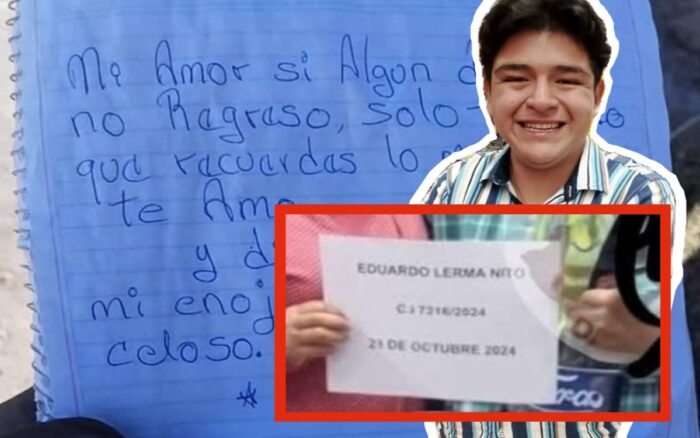 Mi Amor si Algun
no Ragraso, solo
qua racuardas lo
te Amo
y
mi
celoso.
EDUARDO LERMA NITO
C.I 7216/2024
21 DE OCTUBRE 2024